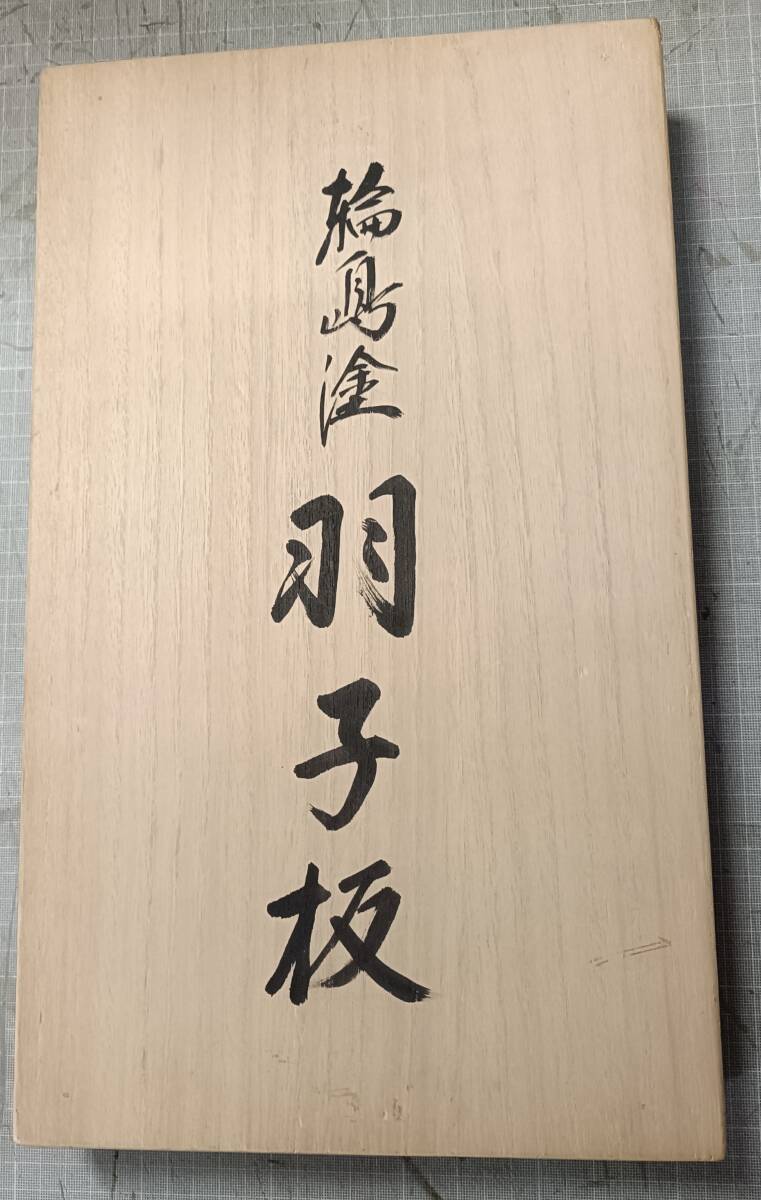 輪島塗
羽子板